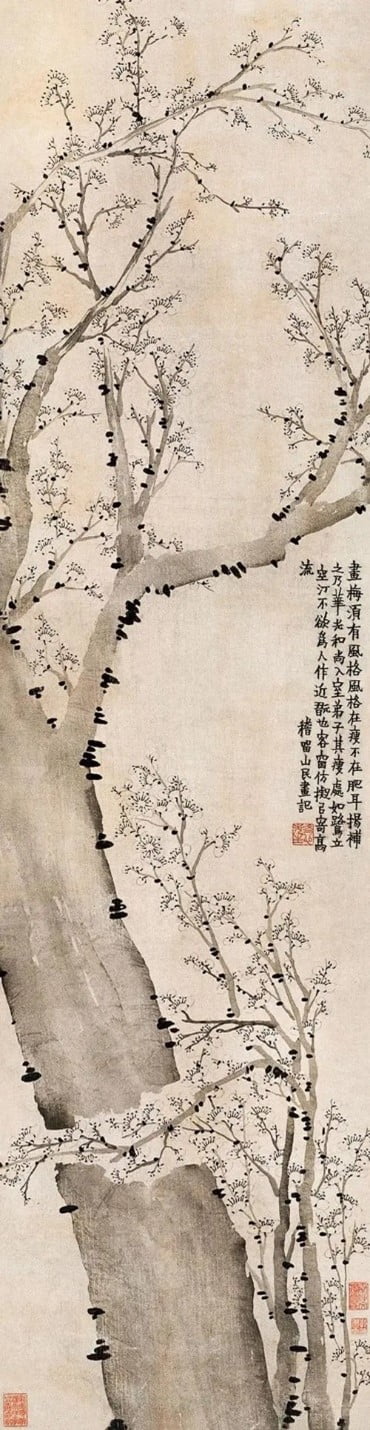 畫梅須有風格風格在瘦不在肥耳揚補
之乃華光和尚入室弟子其瘦處如鷺立
空汀不欲為人作近玩也客窗仿擬以寄高
流
稽留山民畫記